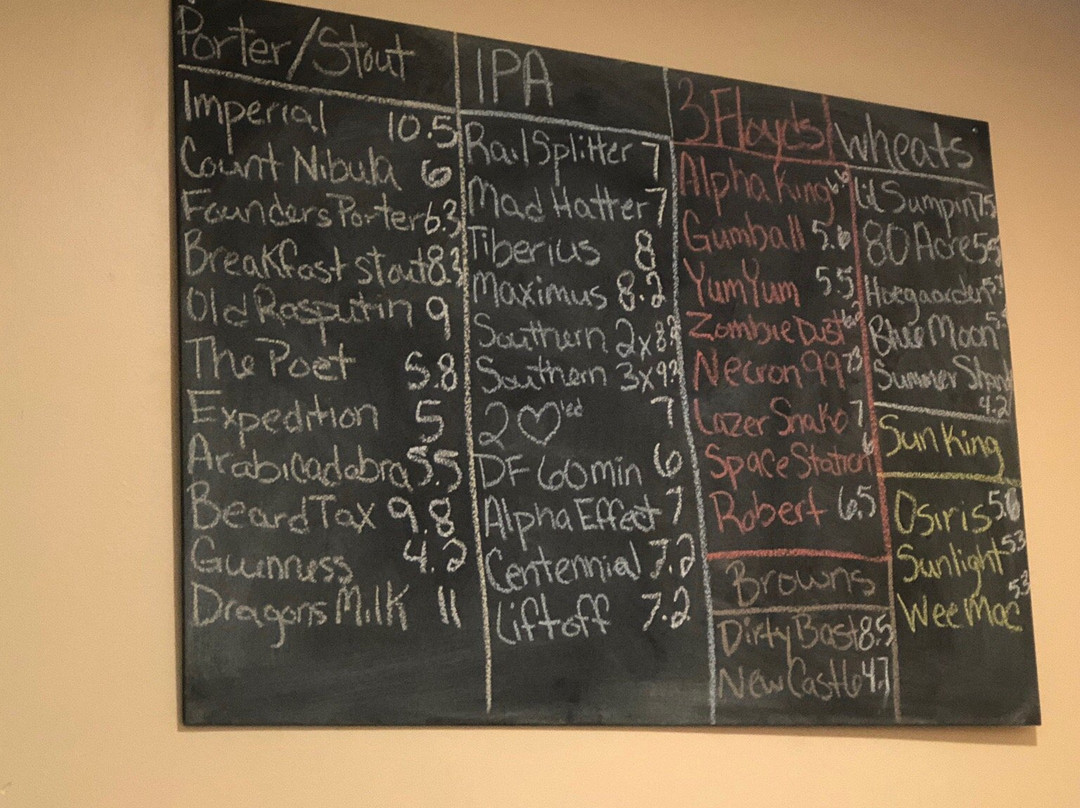 Porter/Stout
Imperial 10.5
Count Nibula 6
Founders Porter 6.3
Breakfast stout 8.3
Old Rasputin 9
The Poet 5.8
Expedition 5
Arabicadabra 5.5
Beard Tax 9.8
Guinness 4.2
Dragons Milk 11
IPA
Rail Splitter 7
Mad Hatter 7
Tiberius 8
Maximus 8.2
Southern 2x 8.2
Southern 3x 9.2
2♡'ed 7
DF 60 min 6
Alpha Effect 7
Centennial 7.2
Liftoff 7.2
3 Floyds
Alpha King 6.6
Gumball 5.6
YumYum 5.5
Zombie Dust
Necron 99
Lazer Snake 7
Space Station
Robert 6.5
Browns
Dirty Bast 8.5
New Castle 4.7
Wheats
Lil Sumpin 7.5
80 Acre 5.5
Hoegaarden
Blue Moon
Summer Shandy
4.2
Sun King
Osiris 5.6
Sunlight 5.3
Wee Mac 5.3